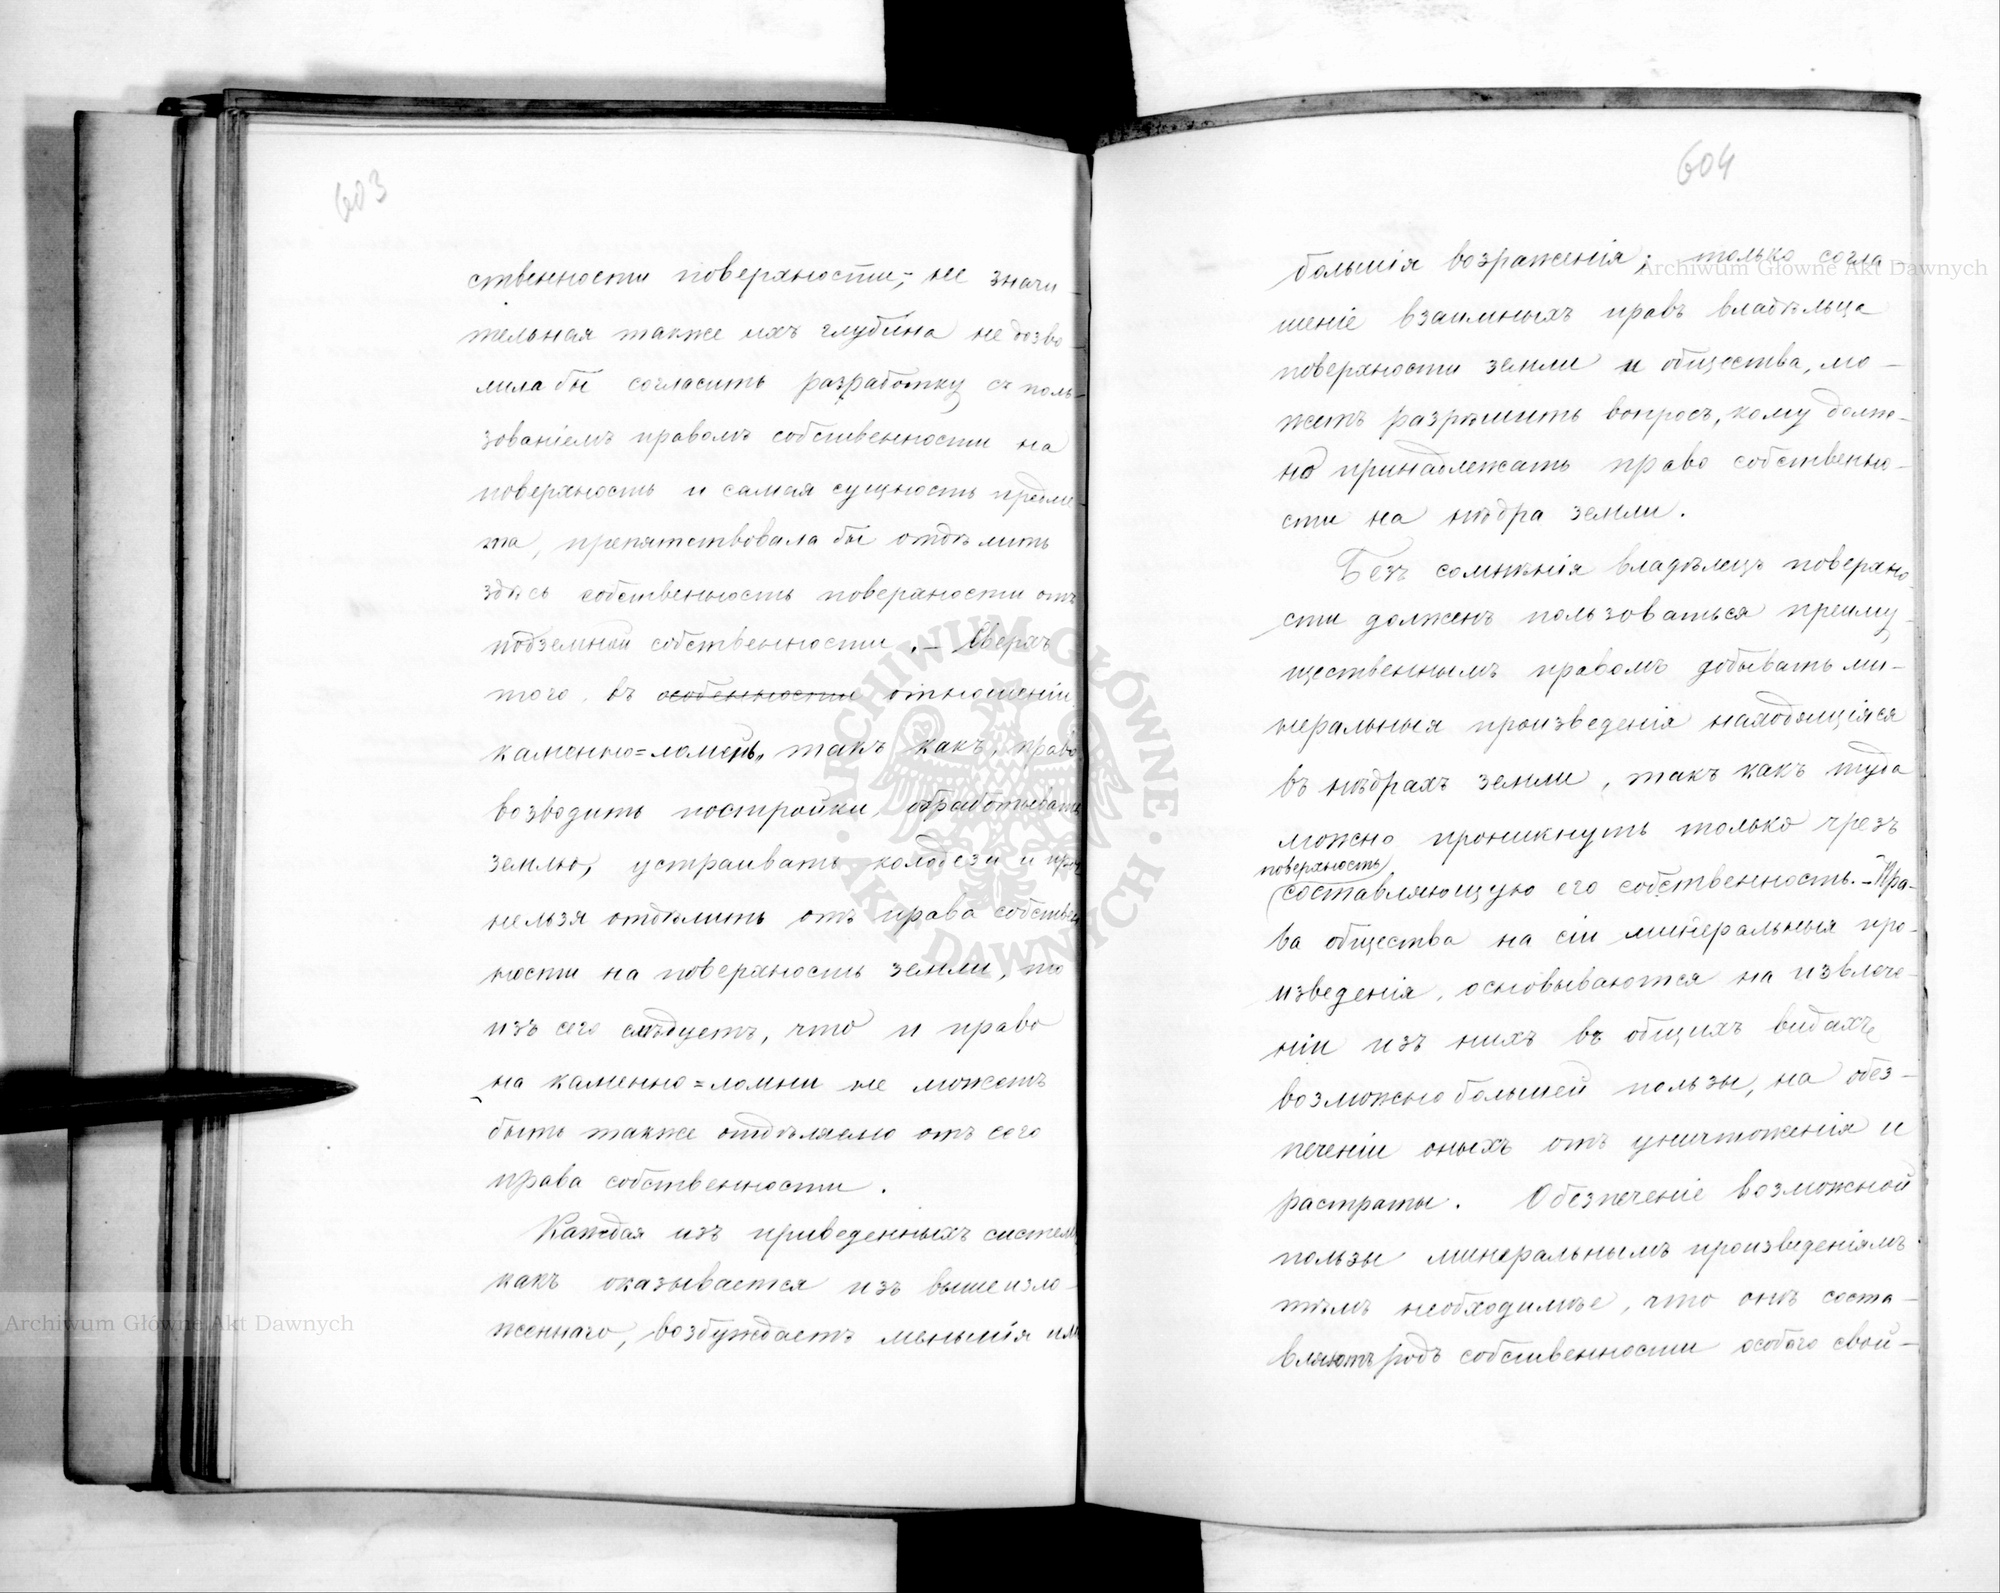 603
ственности поверхности; не значи
тельная также ихъ глубина не дозво
лила бы согласить разработку съ поль-
зованіемъ правомъ собственности на
поверхность и самая сущность предме
та, препятствовала бы отдѣлить
здѣсь собственность поверхности отъ
подземной собственности. – Сверхъ
того, въ особенности отношеніи
каменно=ломень, такъ какъ, право
возводить постройки, обработывать
землю, устраивать колодези и проч
нельзя отдѣлить отъ права собствен
ности на поверхность земли, то
изъ сего слѣдуетъ, что и право
на каменно=ломни не можетъ
быть также отдѣляемо отъ сего
права собственности.
Каждая изъ приведенныхъ системъ
какъ оказывается изъ вышеизло-
женнаго, возбуждаетъ меньшія или
604
большія возраженія; только согла
шеніе взаимныхъ правъ владѣльца
поверхности земли и общества, мо-
жетъ разрѣшить вопросъ, кому долж-
но принадлежать право собственно-
сти на нѣдра земли.
Безъ сомнѣнія владѣлецъ поверхно
сти долженъ пользоваться преиму-
щественнымъ правомъ добывать ми-
неральныя произведенія находящіяся
въ нѣдрахъ земли, такъ какъ туда
можно проникнуть только чрезъ
поверхность
составляющую его собственность. – Пра-
ва общества на сіи минеральныя про-
изведенія, основываются на извлече-
ніи изъ нихъ въ общихъ видахъ
возможно большей пользы, на обез-
печеніи оныхъ отъ уничтоженія и
растраты. Обезпеченіе возможной
пользы минеральнымъ произведеніямъ
тѣмъ необходимѣе, что онѣ соста-
вляютъ родъ собственности особаго свой-
Archiwum Główne Akt Dawnych
Archiwum Główne Akt Dawnych
ARCHIWUM GŁÓWNE · AKT DAWNYCH ·